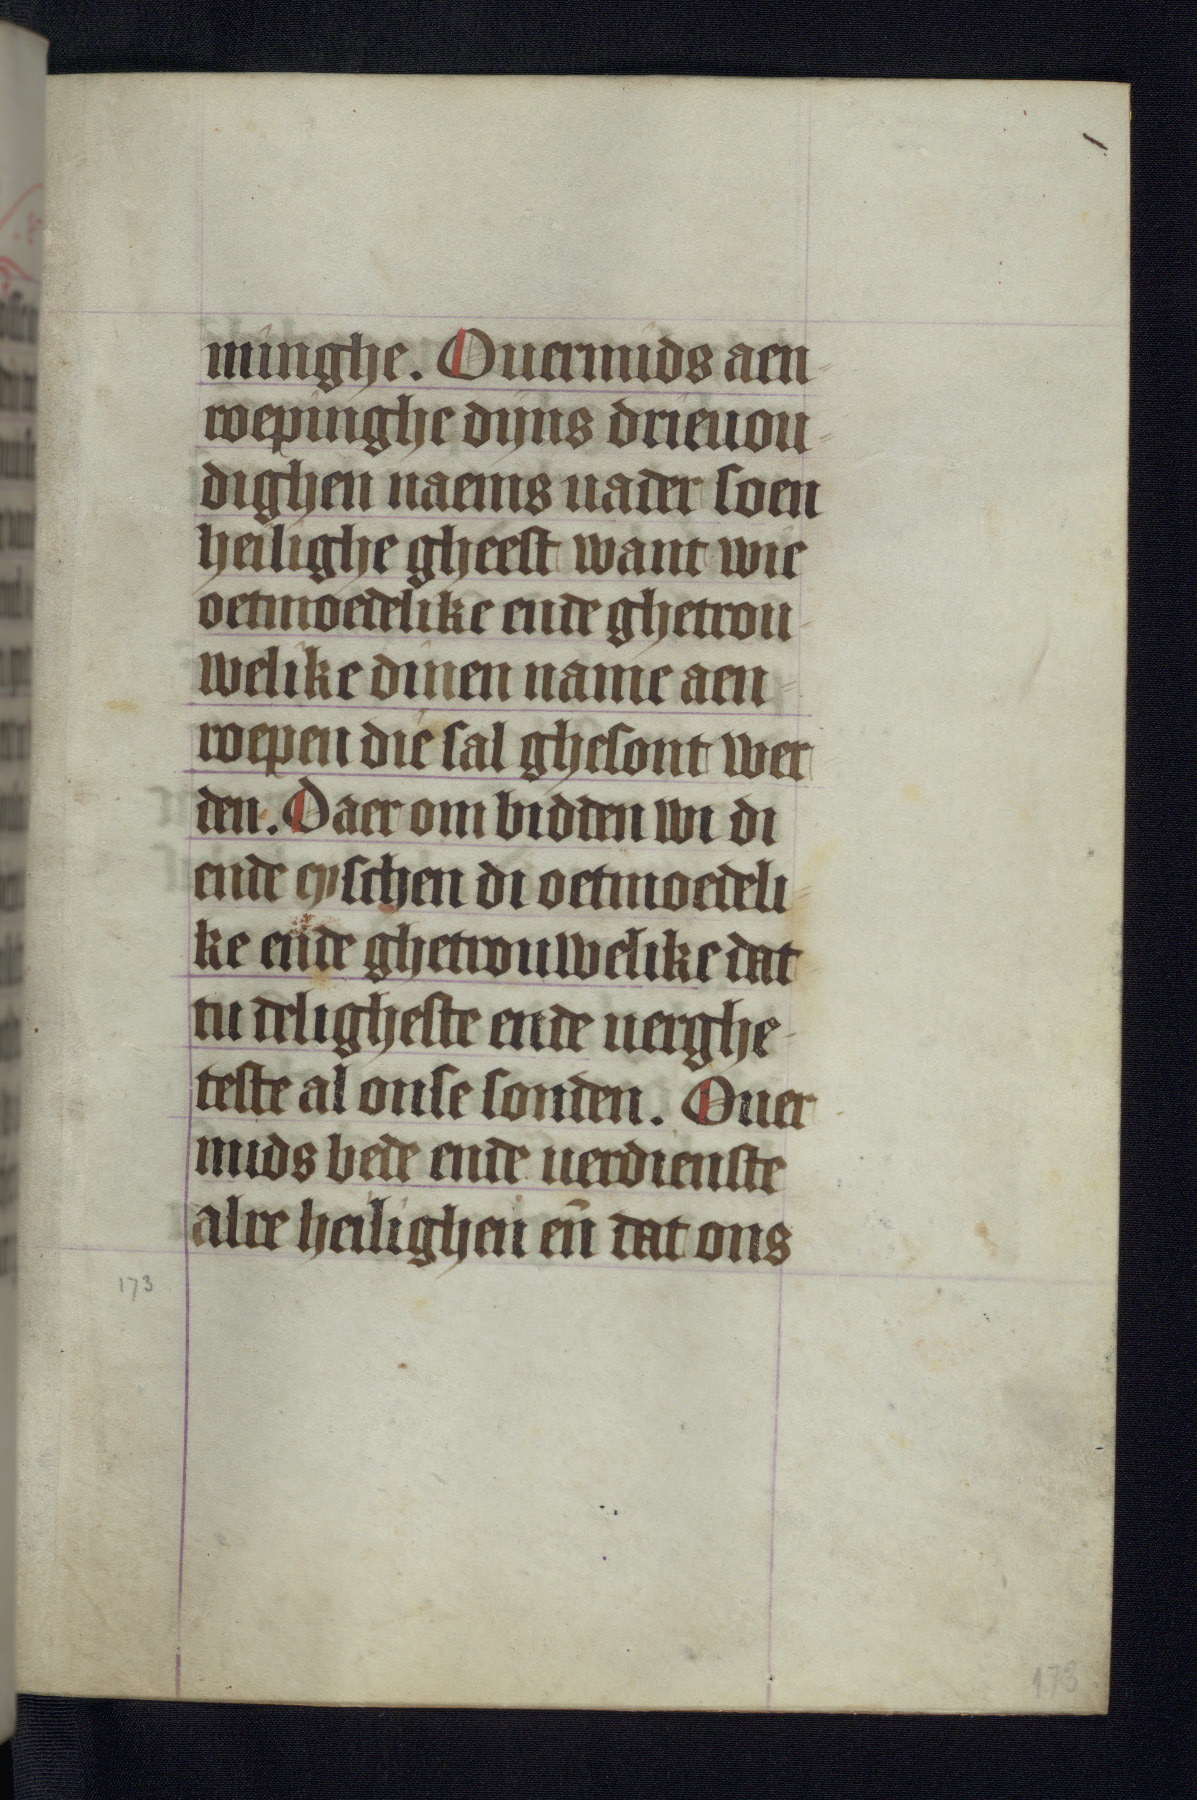 minghe. Ouermids aen-
roepinghe dijns drieuou-
dighen naems uader soen
heilighe gheest want wie
oetmoedelike ende ghetrou
welike dinen name aen-
roepen die sal ghesont wer
den. Daer om bidden wi di
ende eyschen di oetmoedeli-
ke ende ghetrouwelike dat
tu deligheste ende uerghe-
teste al onse sonden. Ouer
mids bede ende uerdienste
alre heilighen eñ dat ons
173
173